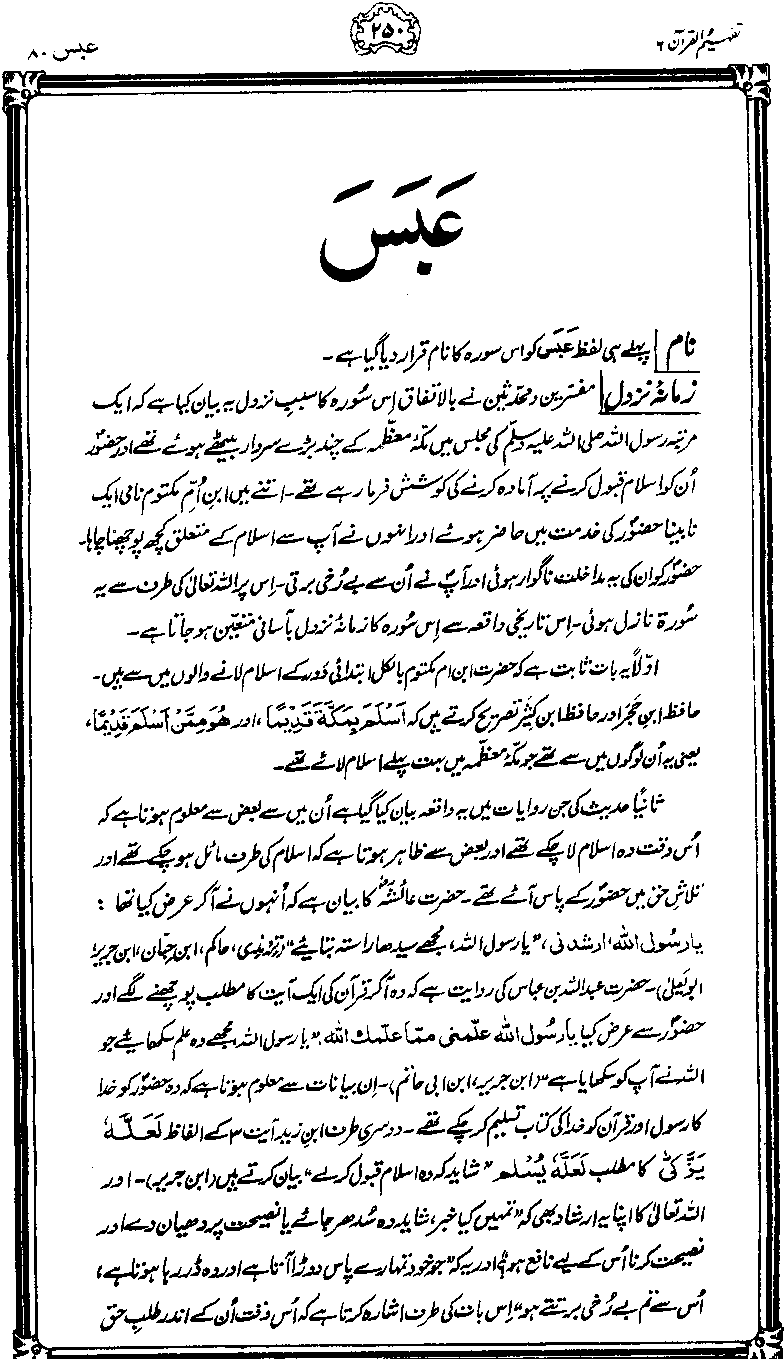 تفہیم القرآن ۶
۲۵۰
عبس ۸۰
عَبَسَ
نام | پہلے ہی لفظ عَبَسَ کو اس سورہ کا نام قرار دیا گیا ہے۔
زمانۂ نزول | مفسّرین و محدّثین نے بالاتفاق اِس سُورہ کا سببِ نزول یہ بیان کیا ہے کہ ایک
مرتبہ رسول اللہ صلی اللہ علیہ وسلّم کی مجلس میں مکّۂ معظّمہ کے چند بڑے سردار بیٹھے ہوئے تھے اور حضورؐ
اُن کو اسلام قبول کرنے پر آمادہ کرنے کی کوشش فرما رہے تھے۔ اتنے میں ابنِ اُمِّ مکتوم نامی ایک
نابینا حضورؐ کی خدمت میں حاضر ہوئے اور انہوں نے آپ سے اسلام کے متعلق کچھ پوچھنا چاہا۔
حضورؐ کو ان کی یہ مداخلت ناگوار ہوئی اور آپؐ نے اُن سے بے رُخی برتی۔ اِس پر اللہ تعالیٰ کی طرف سے یہ
سُورۃ نازل ہوئی۔ اِس تاریخی واقعہ سے اِس سُورہ کا زمانۂ نزول بآسانی متعیّن ہو جاتا ہے۔
اوّلاً یہ بات ثابت ہے کہ حضرت ابن ام مکتوم بالکل ابتدائی دَور کے اسلام لانے والوں میں سے ہیں۔
حافظ ابنِ حَجَر اور حافظ ابن کَثیر تصریح کرتے ہیں کہ اَسْلَمَ بِمَکَّۃَ قَدِیْمًا، اور ھُوَ مِمَّنْ اَسْلَمَ قَدِیْمًا،
یعنی یہ اُن لوگوں میں سے تھے جو مکّۂ معظّمہ میں بہت پہلے اسلام لائے تھے۔
ثانیاً حدیث کی جن روایات میں یہ واقعہ بیان کیا گیا ہے اُن میں سے بعض سے معلوم ہوتا ہے کہ
اُس وقت وہ اسلام لا چکے تھے اور بعض سے ظاہر ہوتا ہے کہ اسلام کی طرف مائل ہو چکے تھے اور
تلاشِ حق میں حضورؐ کے پاس آئے تھے۔ حضرت عائشہؓ کا بیان ہے کہ اُنہوں نے آکر عرض کیا تھا :
یا رسُولَ اللہ، ارشدنی، "یا رسول اللہ، مجھے سیدھا راستہ بتائیے" (ترمذی، حاکم، ابن حِبّان، ابن جریر،
ابو یَعلیٰ)۔ حضرت عبداللہ بن عباس کی روایت ہے کہ وہ آکر قرآن کی ایک آیت کا مطلب پوچھنے لگے اور
حضورؐ سے عرض کیا یا رسُولَ اللہ علّمنی ممّا علّمك اللہ، "یا رسول اللہ، مجھے وہ علم سکھائیے جو
اللہ نے آپ کو سکھایا ہے" (ابن جریر، ابن ابی حاتم)۔ اِن بیانات سے معلوم ہوتا ہے کہ وہ حضورؐ کو خدا
کا رسول اور قرآن کو خدا کی کتاب تسلیم کر چکے تھے۔ دوسری طرف ابنِ زید آیت ۳ کے الفاظ لَعَلَّہٗ
یَزَّکّٰی کا مطلب لَعَلَّہٗ یُسْلم "شاید کہ وہ اسلام قبول کر لے" بیان کرتے ہیں (ابن جریر)۔ اور
اللہ تعالیٰ کا اپنا یہ ارشاد بھی کہ "تمہیں کیا خبر، شاید وہ سُدھر جائے یا نصیحت پر دھیان دے اور
نصیحت کرنا اُس کے لیے نافع ہو؟" اور یہ کہ "جو خود تمہارے پاس دوڑا آتا ہے اور وہ ڈر رہا ہوتا ہے،
اُس سے تم بے رُخی برتتے ہو" اِس بات کی طرف اشارہ کرتا ہے کہ اُس وقت اُن کے اندر طلبِ حق